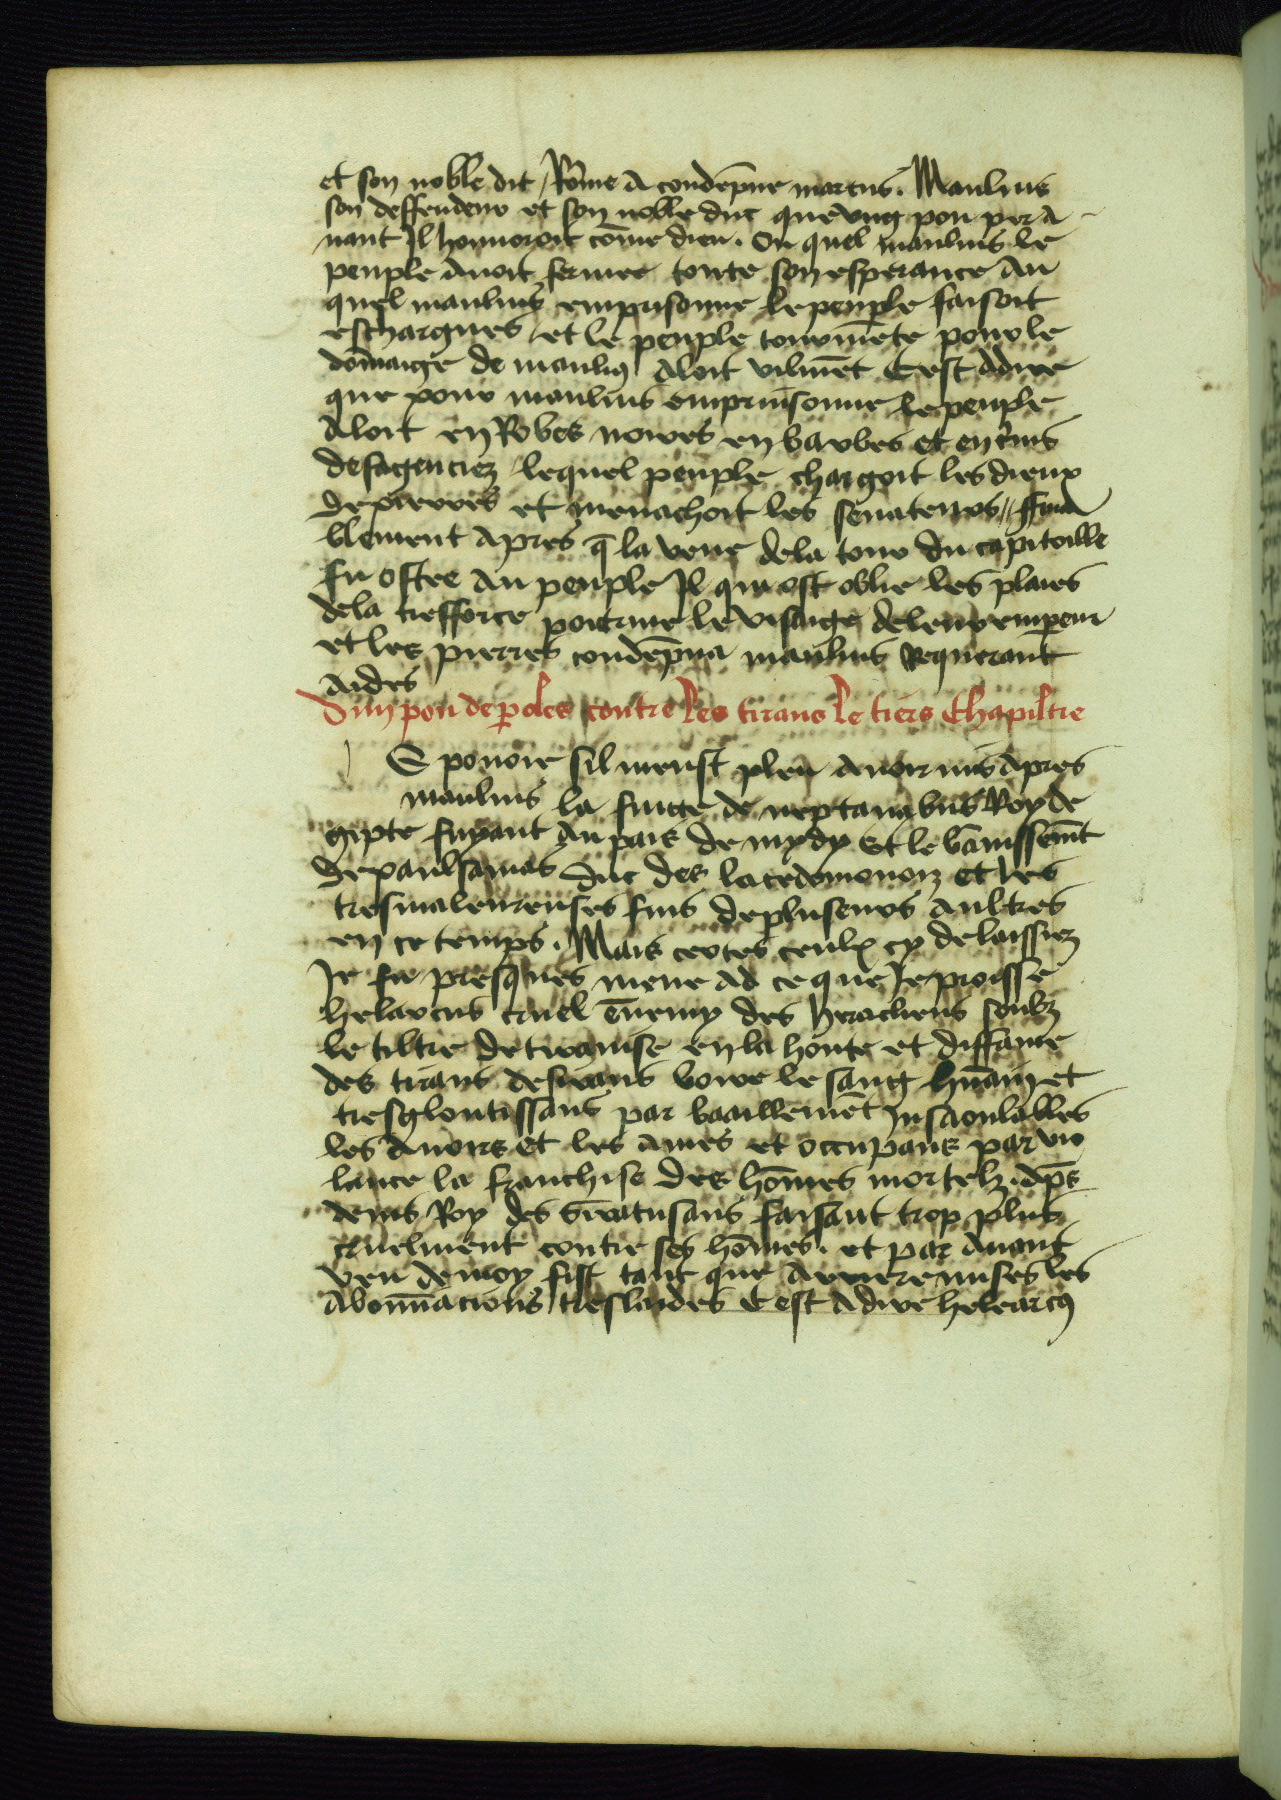 et son noble dit / Rōme A condēpne marcus. Manlius
son deffendeur et son noble duc que vng pou per A
uant Il honnoroit cōme dieu. Ou quel manlius le
peuple Auoit fermee toute son esperance Au
quel manlius emprisonne le peuple faisoit
eschargues / et le peuple tourmēte pour le
dōmaige de manliꝰ Aloit vilmēt C'est Adire
que pour manlius emprinsonne le peuple
Aloit en Robes noires en barbes et en crins
desagenciez / lequel peuple chargoit les dieux
de pierres et menachoit les senateurs //
blement Apres q̄ la veue de la tour du capitoille
fu ostee Au peuple Il qui ost oblie les plaies
de la poitrine le visaige de leur empereur
et les pierres condēpna manlius Requerant
Aides
Vn pou de ꝑoles contre les tirans le tiers Chapiltre
E pouoie sil meust pleu Auoir mis Apres
manlius la fuitte de neptanabus Roy de
gipte fuyant Au pais de mydy Et le bānissemēt
De paulsanias duc des lacedemonoz et les
tresmaleureuses fins de pluseurs Aultres
en ce temps. Mais certes ceulx cy delaissiez
Je fu presques mene Ad ce que Je proisse
helarcus cruel ēnemy des heracliens soubz
le tiltre de tirannise en la honte et diffame
des tirans desirans boire le sang hūain et
tresgloutissans par baaillemēt Insaoulables
les Auoirs et les Ames et occupans par vio
lance la franchise des hōmes mortelz. Apꝰs
denis Roy des siracusans faisant trop plus
cruelment contre ses hōmes. et par Auant
veu de moy fist tant que Arriere mises les
Abominacions treslaides C'est Adire helearcꝰ